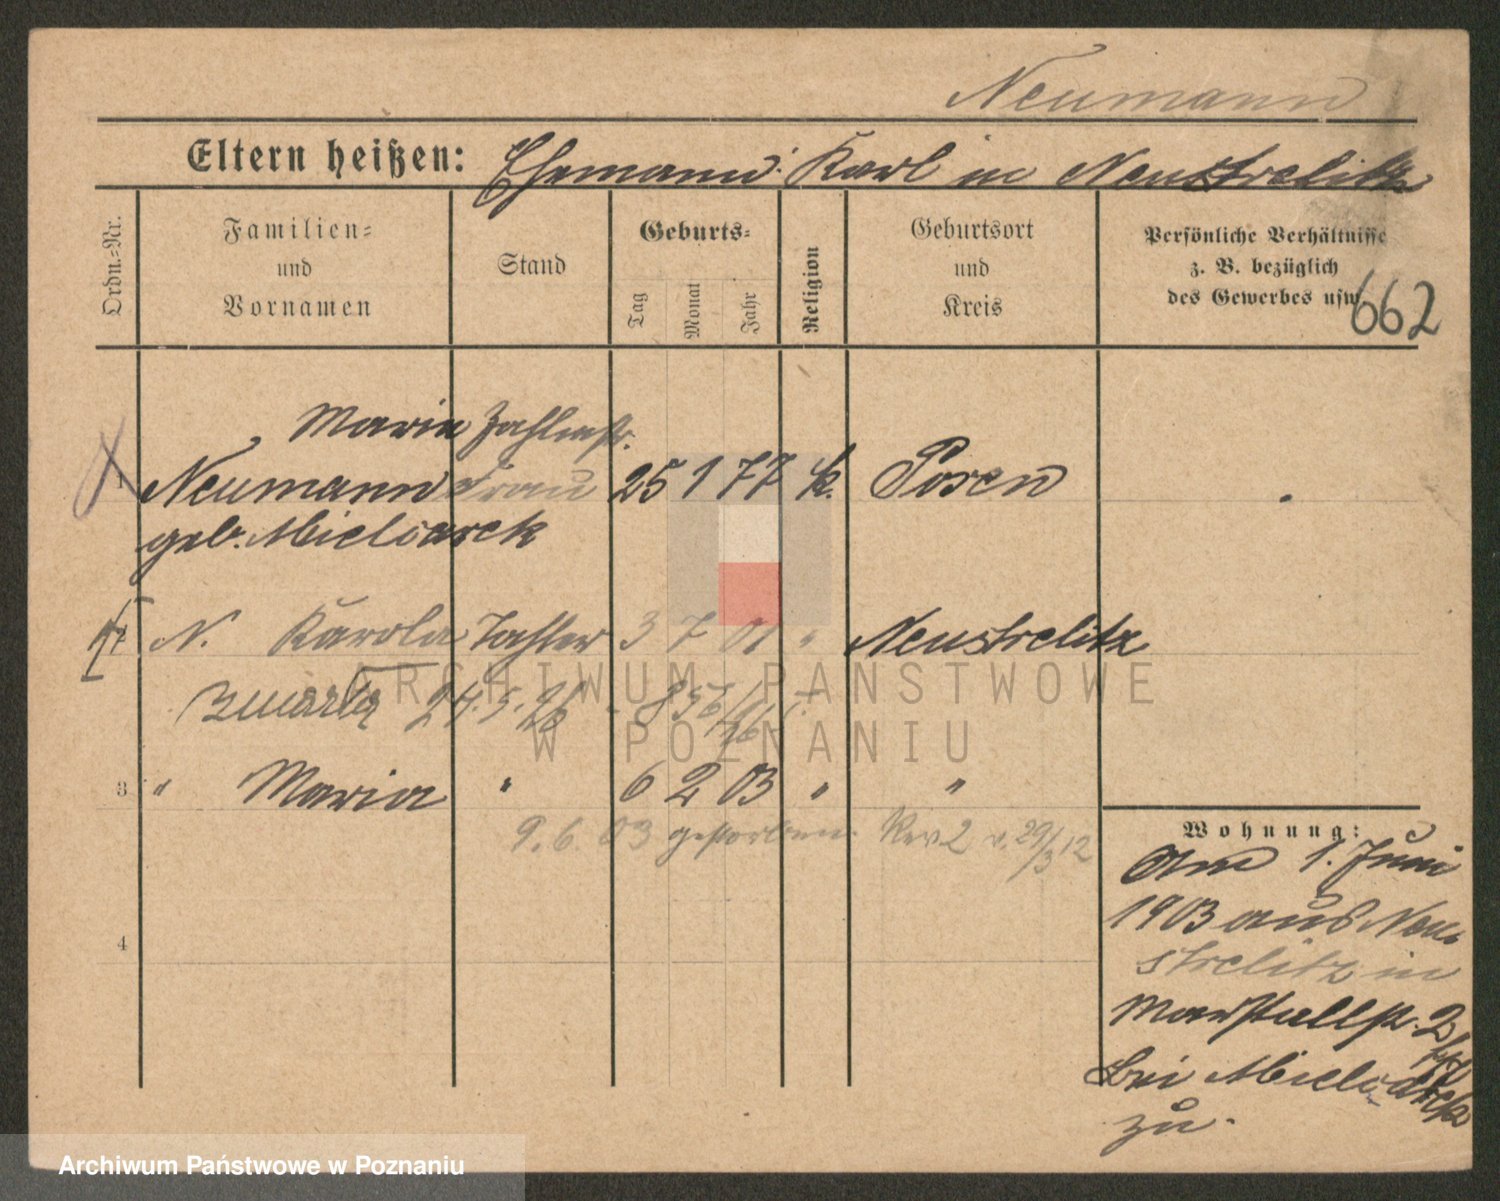 Neumann
Eltern heißen: Ehemann: Karl in Neustrelitz
Ordn.=Nr.
Familien=
und
Vornamen
Stand
Geburts=
Tag
Monat
Jahr
Religion
Geburtsort
und
Kreis
Persönliche Verhältnisse
z. B. bezüglich
des Gewerbes usw.
662
Maria Zahlmstr.
1 Neumann Frau 25 1 77 k. Posen
geb. Mielcarek
2 N. Karola Tochter 3 7 01 " Neustrelitz
zmarła 24.5.26
3 " Maria " 6 2 03 " "
9. 6. 03 gestorben. Rev 2 v. 29/3 12
4
Wohnung:
Am 1. Juni
1903 aus Neu
strelitz in
Marstallstr. 2
bei Mielcarek
zu.
ARCHIWUM PAŃSTWOWE
W POZNANIU
Archiwum Państwowe w Poznaniu